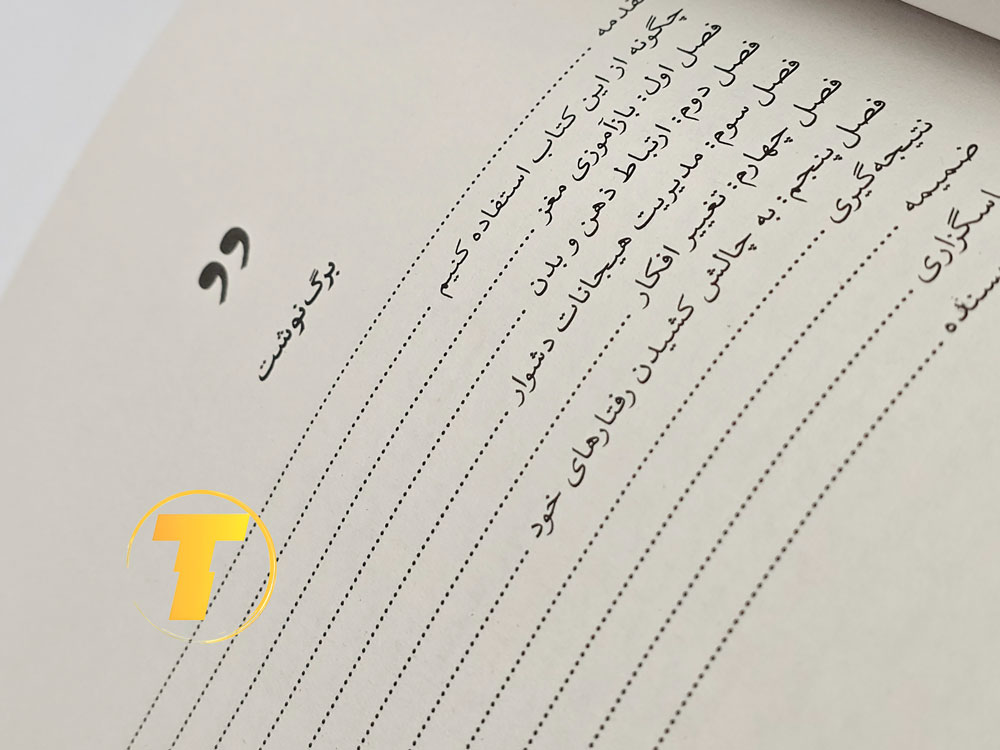 وو
برگ‌نوشت
چگونه از این کتاب استفاده کنیم
فصل اول: بازآموزی مغز
فصل دوم: ارتباط ذهن و بدن
فصل سوم: مدیریت هیجانات دشوار
فصل چهارم: تغییر افکار
فصل پنجم: به چالش کشیدن رفتارهای خود
نتیجه‌گیری
ضمیمه
T